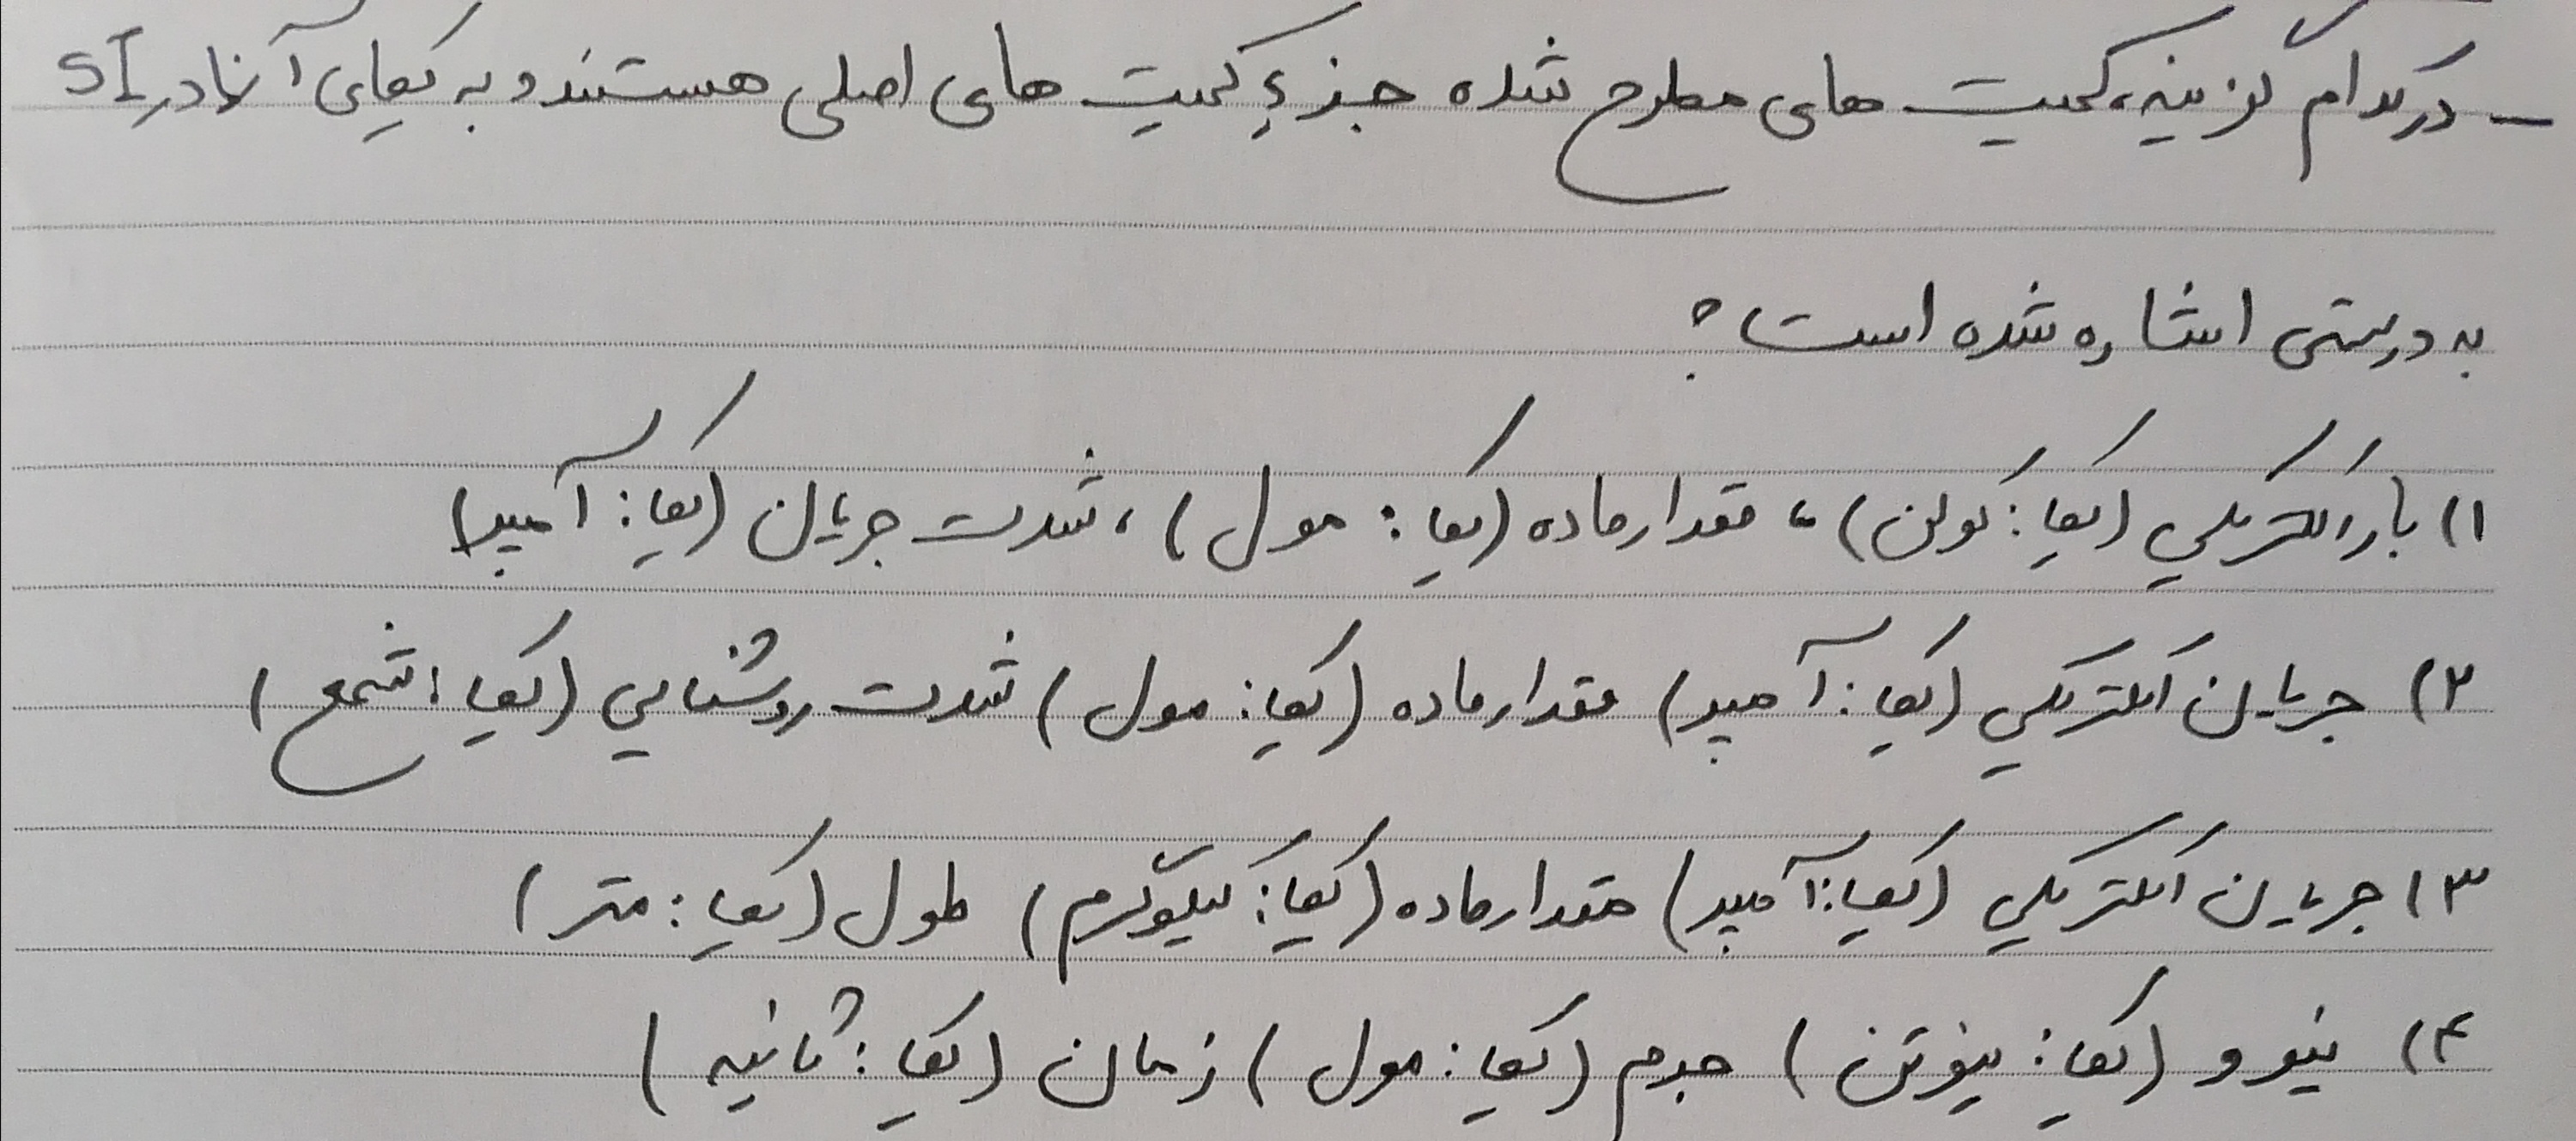 ـ در کدام گزینه، کمیت های مطرح شده جزءِ کمیت های اصلی هستند و به یکای آنها در SI
به درستی اشاره شده است؟
۱) بار الکتریکی (یکا: کولن)، مقدار ماده (یکا: مول)، شدت جریان (یکا: آمپر)
۲) جریان الکتریکی (یکا: آمپر) مقدار ماده (یکا: مول) شدت روشنایی (یکا: شمع)
۳) جریان الکتریکی (یکا: آمپر) مقدار ماده (یکا: کیلوگرم) طول (یکا: متر)
۴) نیرو (یکا: نیوتن) جرم (یکا: مول) زمان (یکا: ثانیه)